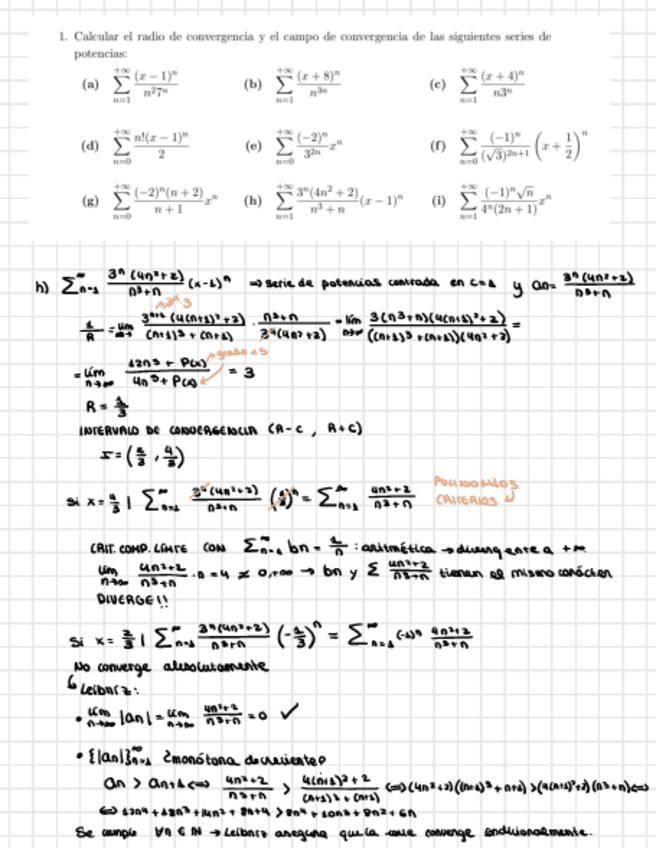 1. Calcular el radio de convergencia y el campo de convergencia de las siguientes series de
potencias:
(a) ∑_{n=1}^{+∞} (x − 1)^n / n^2 7^n (b) ∑_{n=1}^{+∞} (x + 8)^n / n^{3n} (c) ∑_{n=1}^{+∞} (x + 4)^n / n3^n
(d) ∑_{n=0}^{+∞} n!(x − 1)^n / 2 (e) ∑_{n=0}^{+∞} (−2)^n / 3^{2n} x^n (f) ∑_{n=0}^{+∞} (−1)^n / (√3)^{2n+1} (x + 1/2)^n
(g) ∑_{n=0}^{+∞} (−2)^n(n + 2) / n + 1 x^n (h) ∑_{n=1}^{+∞} 3^n(4n^2 + 2) / n^3 + n (x − 1)^n (i) ∑_{n=1}^{+∞} (−1)^n √n / 4^n(2n + 1) x^n
h) ∑_{n=1}^∞ 3^n (4n^2+2) / n^3+n (x-1)^n ⇒ serie de potencias centrada en c=1 y an= 3^n (4n^2+2) / n^3+n
1/R = lím 3^{n+1} (4(n+1)^2+2) / (n+1)^3 + (n+1) · n^3+n / 3^n(4n^2+2) = lím_{n→∞} 3(n^3+n)(4(n+1)^2+2) / ((n+1)^3+(n+1))(4n^2+2) =
= lím_{n→∞} 12n^5 + P(x) / 4n^5 + P(x) = 3
R = 1/3
INTERVALO DE CONVERGENCIA (R-C , R+C)
I = (2/3 , 4/3)
Si x = 4/3 | ∑_{n=1}^∞ 3^n(4n^2+2) / n^3+n (1/3)^n = ∑_{n=1}^∞ 4n^2+2 / n^3+n CRITERIOS
CRIT. COMP. LÍMITE CON ∑_{n=1}^∞ bn = 1/n : aritmética → divergente a +∞
lím_{n→∞} 4n^2+2 / n^3+n · n = 4 ≠ 0,+∞ → bn y ∑ 4n^2+2 / n^3+n tienen el mismo carácter
DIVERGE!!
Si x = 2/3 | ∑_{n=1}^∞ 3^n(4n^2+2) / n^3+n (-1/3)^n = ∑_{n=1}^∞ (-1)^n 4n^2+2 / n^3+n
No converge absolutamente
↳ Leibniz:
• lím_{n→∞} |an| = lím_{n→∞} 4n^2+2 / n^3+n = 0 ✓
• {|an|}_{n=1}^∞ ¿monótona decreciente?
an > an+1 ⇔ 4n^2+2 / n^3+n > 4(n+1)^2+2 / (n+1)^3+(n+1) ⇔ (4n^2+2)((n+1)^3+n+1) > (4(n+1)^2+2)(n^3+n) ⇔
Se cumple ∀n ∈ N → Leibniz asegura que la serie converge condicionalmente.